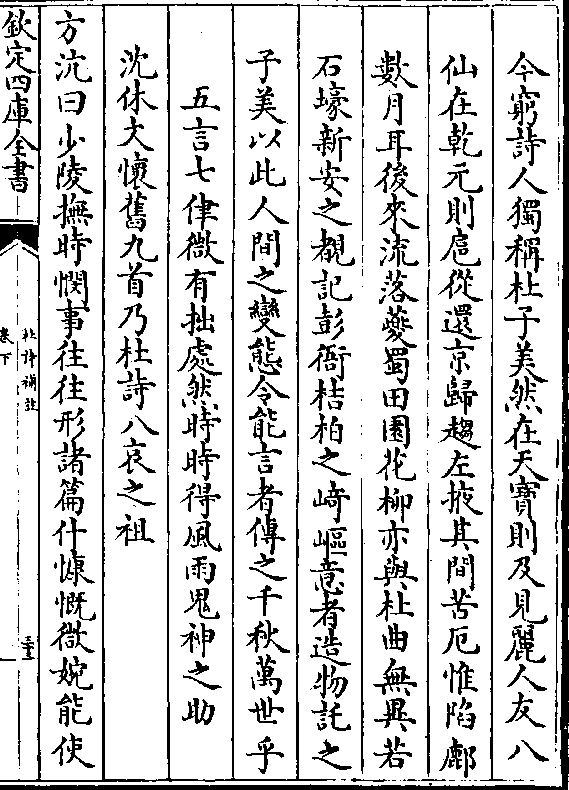 今窮詩人獨稱杜子美然在天寶則及見麗人友八
仙在乾元則扈從還京歸趨左掖其間苦厄惟陷鄜
數月耳後來流落夔蜀田園花柳亦與杜曲無異若
石壕新安之覩記彭衙桔柏之崎嶇意者造物託之
子美以此人間之變態令能言者傳之千秋萬世乎
五言七律微有拙處然時時得風雨鬼神之助
沈休文懷舊九首乃杜詩八哀之祖
方沆曰少陵撫時憫事往往形諸篇什慷慨微婉能使
欽定四庫全書
杜詩補註
卷下